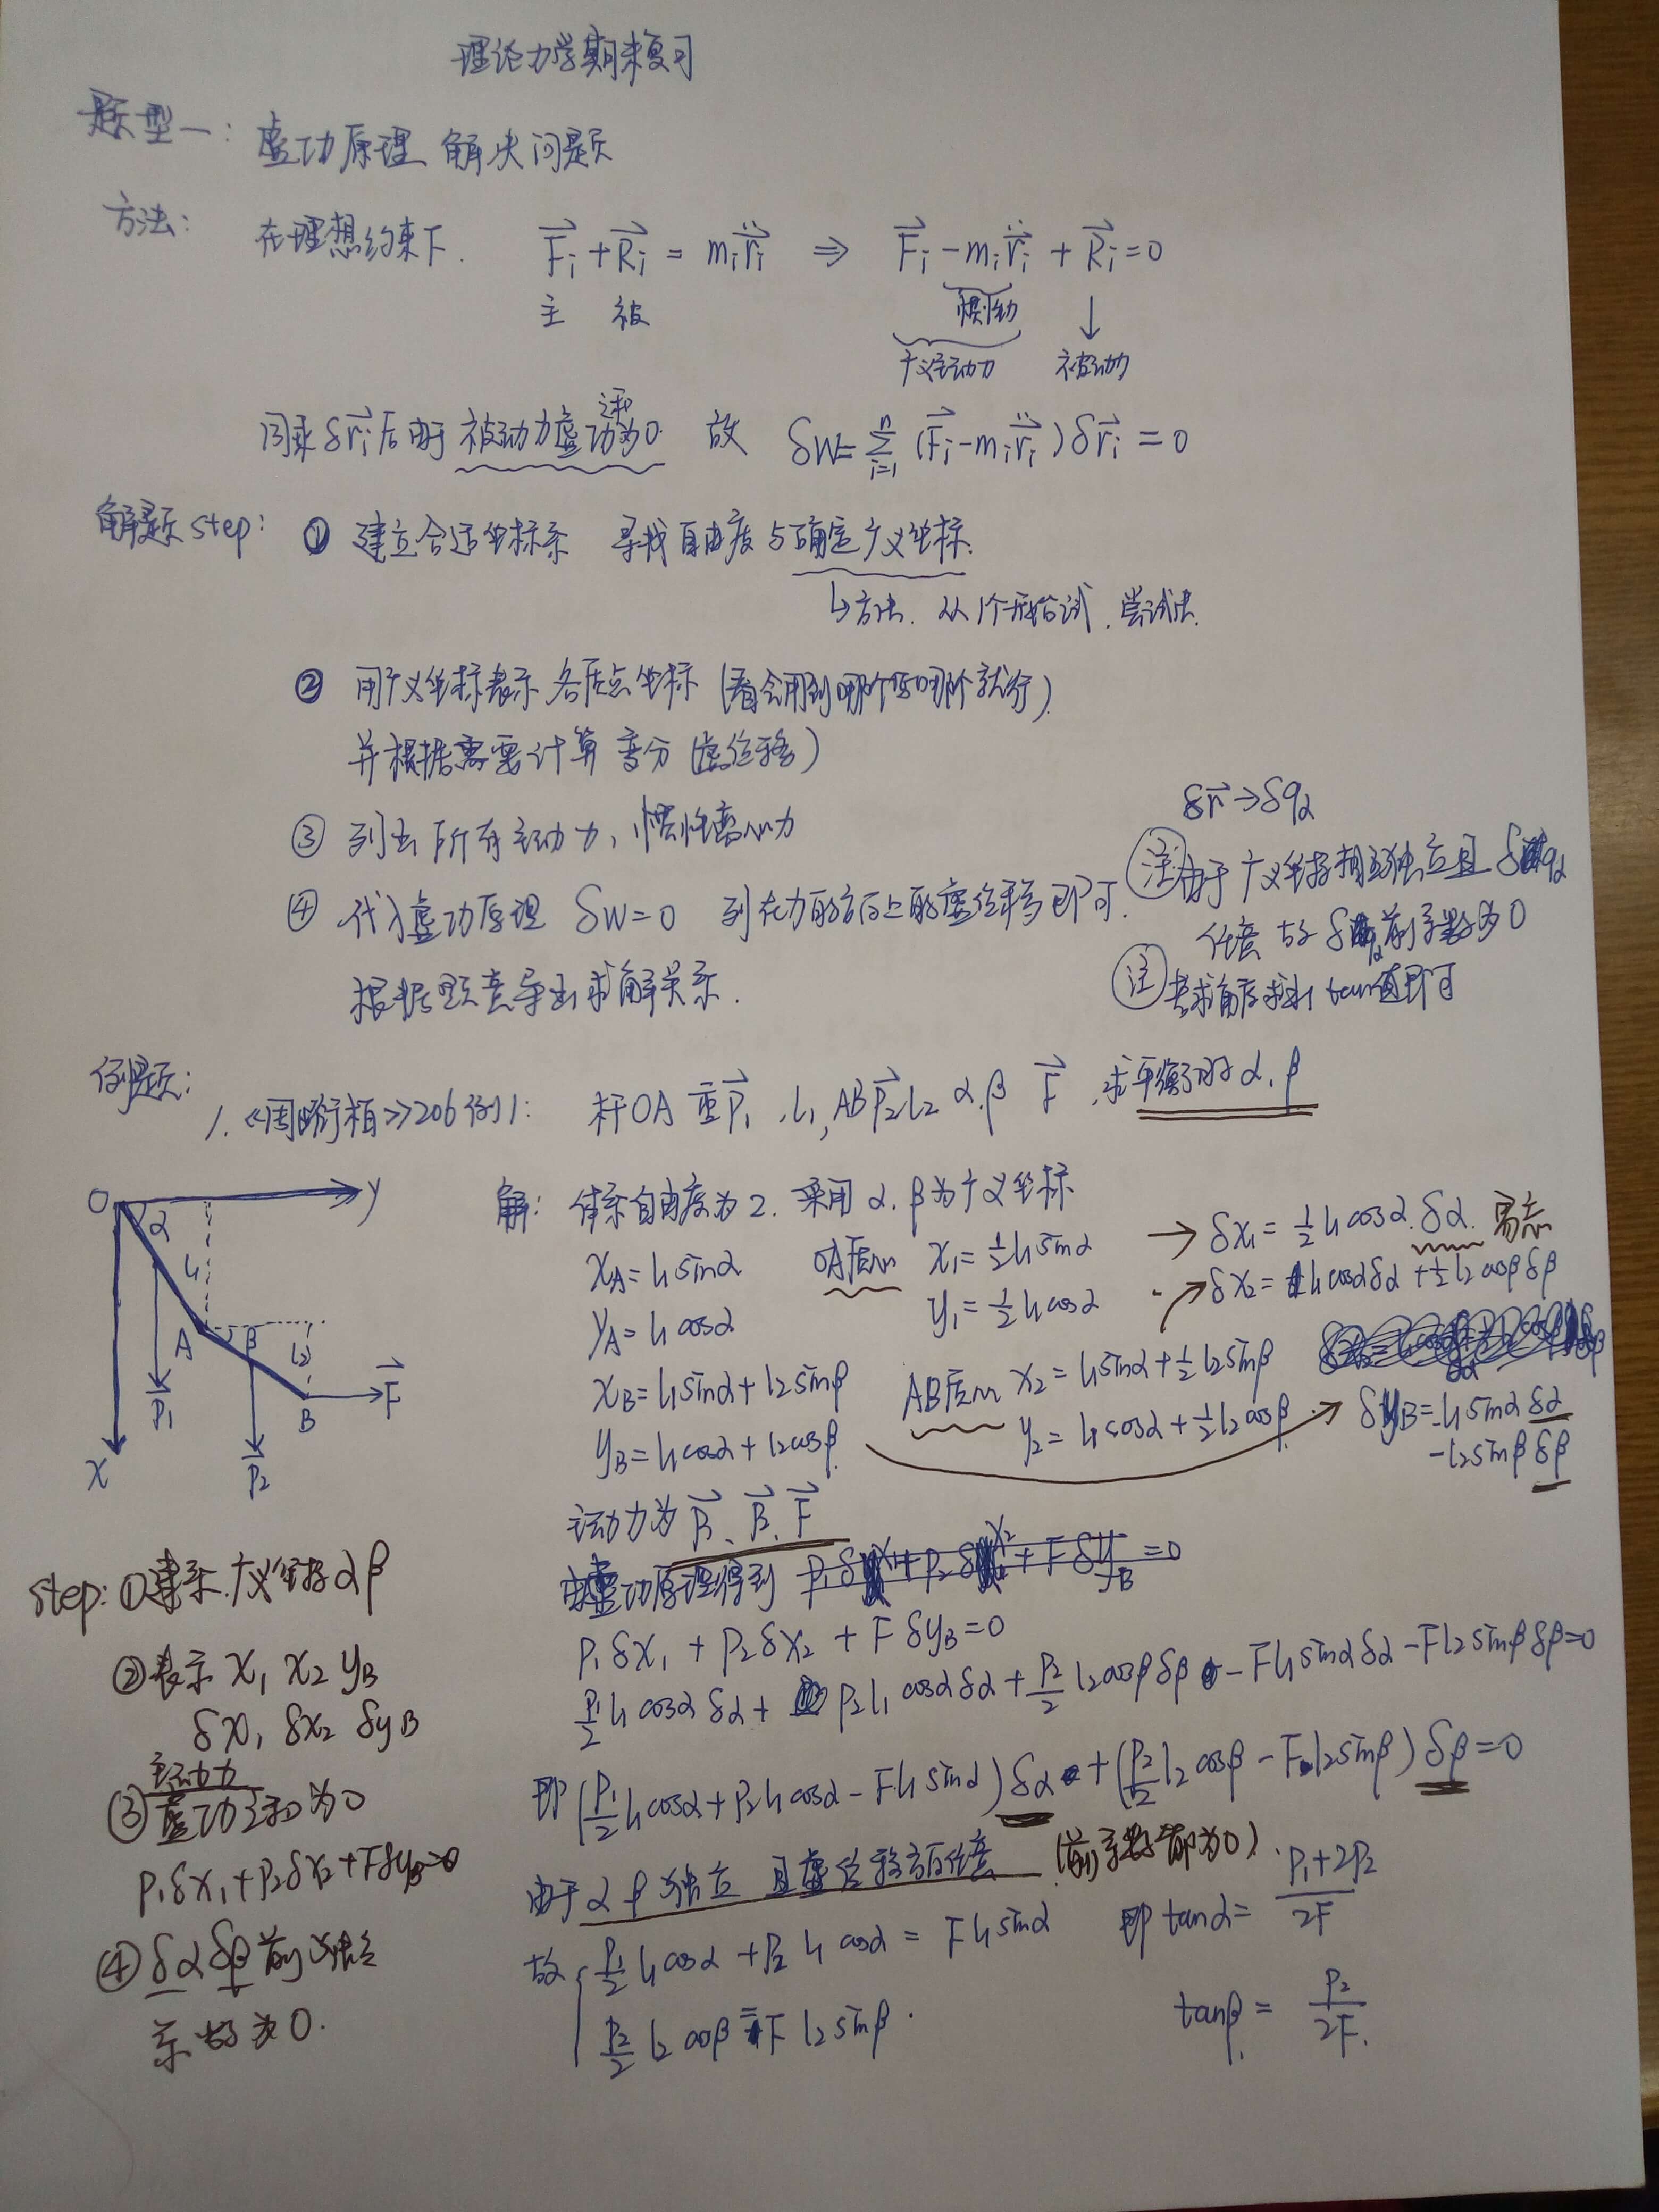 理论力学期末复习
题型一: 虚功原理 解决问题
方法: 在理想约束下. F⃗i + R⃗i = mi r̈⃗i ⇒ F⃗i - mi r̈⃗i + R⃗i = 0
主 被 惯性力 ↓
广义主动力 被动力
同乘 δr⃗i 后由于 被动力虚功之和为0 故 δW = Σ_{i=1}^{n} (F⃗i - mi r̈⃗i) δr⃗i = 0
解题step: ① 建立合适坐标系 寻找自由度与确定广义坐标.
↳方法. 从1个开始试. 尝试法.
② 用广义坐标表示 各质点坐标 (看会用到哪个写哪个就行)
并根据需要计算 变分 (虚位移)
③ 列出所有主动力, 惯性离心力
④ 代入虚功原理 δW=0 列在力的方向上的虚位移即可.
根据题意导出求解关系.
δr⃗ → δqα
注 由于广义坐标相互独立且 δqα
任意 故 δqα 前系数为0
注 若求角度求出 tan值即可
例题:
1. 《周衍柏》206 例1: 杆OA 重P⃗1, l1, AB P⃗2 l2 α.β F⃗ .求平衡时 α.β
O y α l1 A β l2 B F⃗ P⃗1 P⃗2 x
解: 体系自由度为2. 采用 α.β为广义坐标
xA = l1 sinα OA质心 x1 = ½ l1 sinα → δx1 = ½ l1 cosα. δα. 易忘
yA = l1 cosα y1 = ½ l1 cosα → δx2 = l1 cosα δα + ½ l2 cosβ δβ
xB = l1 sinα + l2 sinβ AB质心 x2 = l1 sinα + ½ l2 sinβ
yB = l1 cosα + l2 cosβ. y2 = l1 cosα + ½ l2 cosβ. → δyB = -l1 sinα δα
-l2 sinβ δβ
主动力为 P⃗1、P⃗2、F⃗
由虚功原理得到 P1 δx1 + P2 δx2 + F δyB = 0
P1 δx1 + P2 δx2 + F δyB = 0
P1/2 l1 cosα δα + P2 l1 cosα δα + P2/2 l2 cosβ δβ - F l1 sinα δα - F l2 sinβ δβ = 0
即 (P1/2 l1 cosα + P2 l1 cosα - F l1 sinα) δα + (P2/2 l2 cosβ - F l2 sinβ) δβ = 0
由于 α β 独立 且虚位移方向任意 (前系数都为0).
故 { P1/2 l1 cosα + P2 l1 cosα = F l1 sinα 即 tanα = (P1+2P2)/2F
P2/2 l2 cosβ = F l2 sinβ. tanβ = P2/2F.
step: ①建系.广义坐标 α β
②表示 x1 x2 yB
δx1 δx2 δyB
主动力
③虚功之和为0
P1 δx1 + P2 δx2 + F δyB = 0
④ δα δβ 前 独立
系数为0.